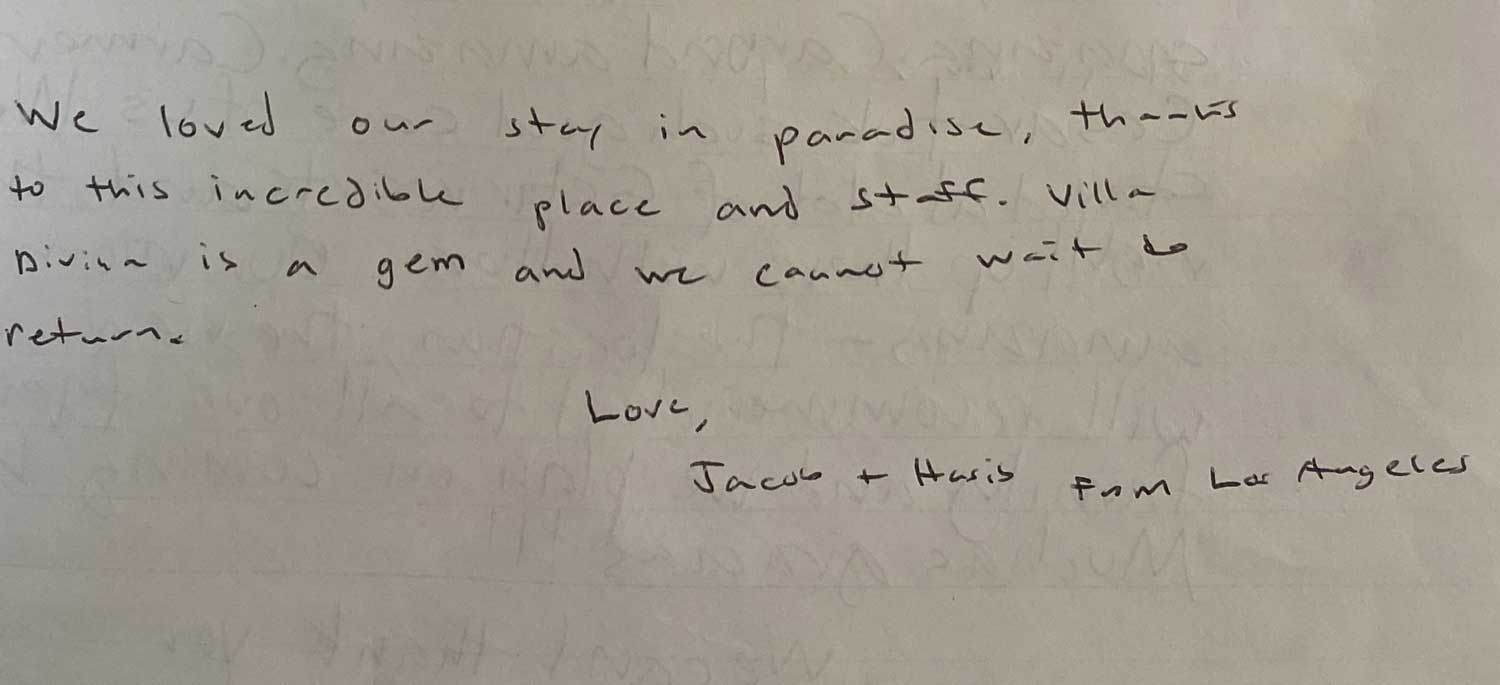 We loved our stay in paradise, thanks
to this incredible place and staff. Villa
Divina is a gem and we cannot wait to
return.
Love,
Jacob + Hasib from Los Angeles